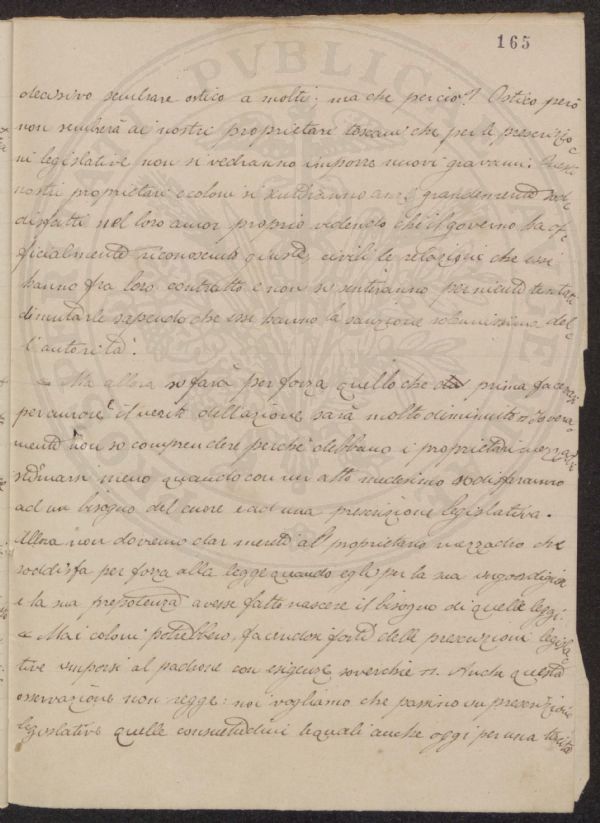 165
decisivo sembrare ostico a molti; ma che perciò? Ostico però
non sembrerà ai nostri proprietari toscani che per le prescrizio
ni legislative non si vedranno imporre nuovi gravami. Questi
nostri proprietari e coloni si sentiranno anzi grandemente sod
disfatti nel loro amor proprio vedendo che il governo ha of
ficialmente riconosciuto giuste, civili le relazioni che essi
hanno fra loro contratto e non si sentiranno per niente tentati
di mutarle sapendo che esse hanno la sanzione solennissima del
l'autorità.
" Ma allora si farà per forza quello che prima facevasi
per amore e il merito dell'azione sarà molto diminuito " Io vera
mente non so comprendere perché debbano i proprietari
stimarsi meno quando con un atto medesimo soddisferanno
ad un bisogno del cuore e ad una prescrizione legislativa.
Allora non dovremo dar merito al proprietario mezzadro che
soddisfa per forza alla legge quando egli per la sua ingordigia
e la sua prepotenza avesse fatto nascere il bisogno di quelle leggi.
" Ma i coloni potrebbero, facendosi forti delle prescrizioni legisla
tive imporsi al padrone con esigenze soverchie ". Anche questa
osservazione non regge: noi vogliamo che passino in prescrizione
legislative quelle consuetudini le quali anche oggi per una tacita